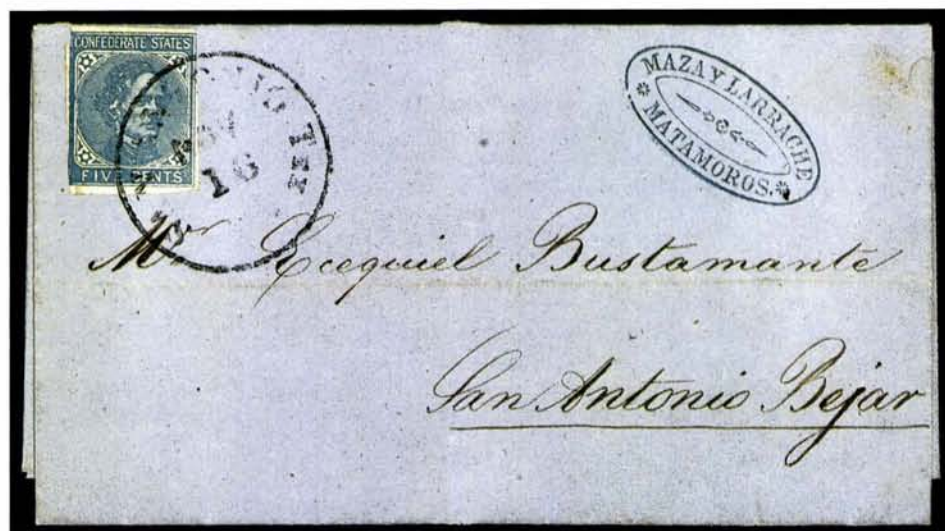 CONFEDERATE STATES
FIVE CENTS
16
TEX
MAZA Y LARRACHE
MATAMOROS.
Mr Ecequiel Bustamante
San Antonio Bejar